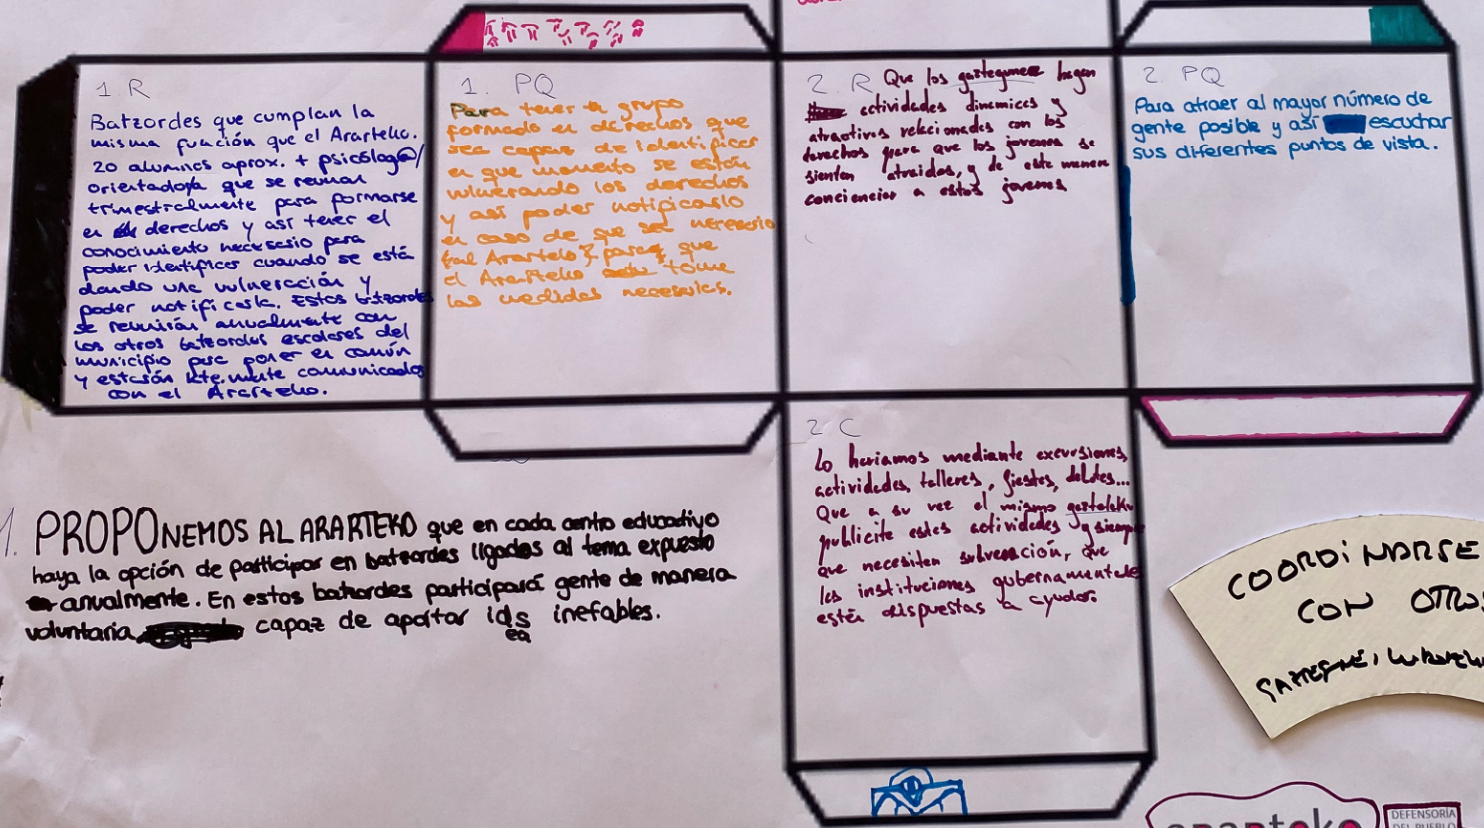 1. R
Batzordes que cumplan la
misma función que el Ararteko.
20 alumnos aprox. + psicólog@/
orientador/a que se reunan
trimestralmente para formarse
en derechos y así tener el
conocimiento necesario para
poder identificar cuando se está
dando una vulneración y
poder notificarla. Estos batzordes
se reunirán anualmente con
los otros batzordes escolares del
municipio para poner en común
y estarán kte.mente comunicados
con el Ararteko.
1. PQ
Para tener un grupo
formado en derechos que
sea capaz de identificar
en que momento se están
vulnerando los derechos
y así poder notificarlo
en caso de que sea necesario
al Ararteko y para que
el Ararteko tome
las medidas necesarias.
2. R Que los gaztegunes hagan
actividades dinamicas y
atractivas relacionadas con los
derechos para que los jovenes se
sientan atraidos, y de esta manera
concienciar a estos jovenes
2. PQ
Para atraer al mayor número de
gente posible y así escuchar
sus diferentes puntos de vista.
2 C
Lo hariamos mediante excursiones,
actividades, talleres, fiestas, debates...
Que a su vez el mismo gazteleku
publicite estas actividades y siempre
que necesiten subvención, que
las instituciones gubernamentales
estén dispuestas a ayudar.
1. PROPONEMOS AL ARARTEKO que en cada centro educativo
haya la opción de participar en batzordes ligados al tema expuesto
anualmente. En estos batzordes participará gente de manera
voluntaria capaz de aportar ideas inefables.
COORDINARSE
CON OTROS
ararteko
DEFENSORÍA
DEL PUEBLO